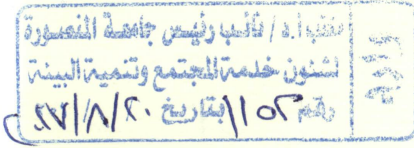 مكتب أ.د / نائب رئيس جامعة المنصورة
لشئون خدمة المجتمع وتنمية البيئة
رقم ١١٥٢ بتاريخ ٢٠/٨/